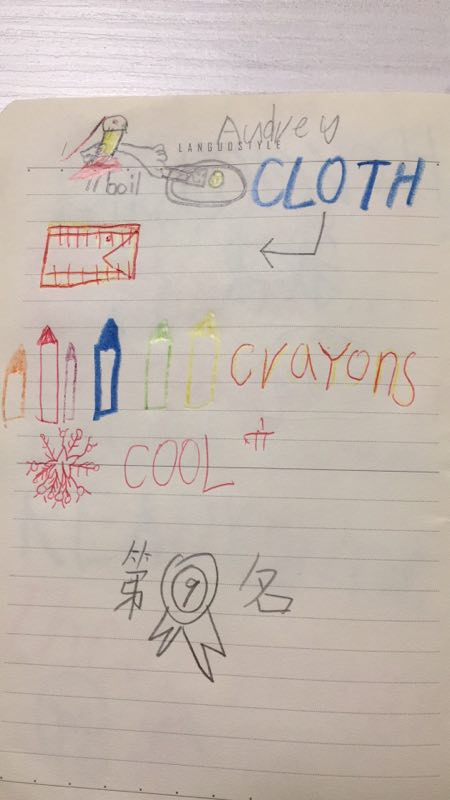 Audrey
LANGUOSTYLE
boil CLOTH
crayons
COOL
第9名